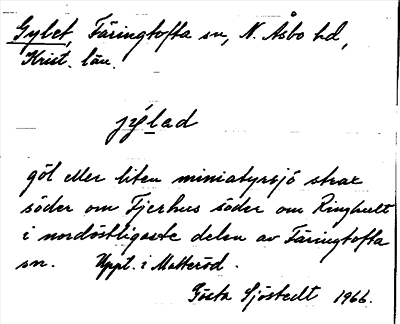 Gylet, Färingtofta sn, N. Åsbo hd,
Krist. län.
jýlad
göl eller liten miniatyrsjö strax
söder om Fjerhus söder om Ringhult
i nordöstligaste delen av Färingtofta
sn. Uppt. i Matteröd.
Gösta Sjöstedt 1966.